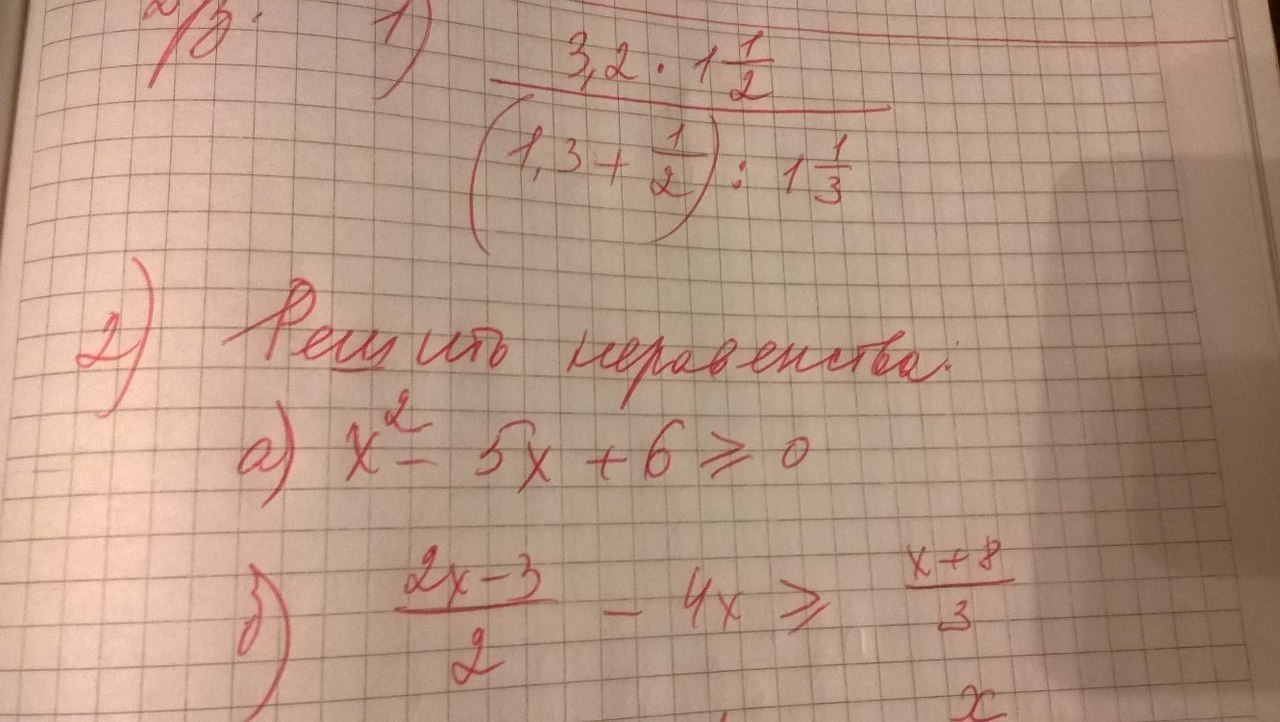 Д/з. 1) (3,2 · 1 1/2) / ((1,3 + 1/2) : 1 1/3)
2) Решить неравенства:
а) x² - 5x + 6 ⩾ 0
б) (2x - 3)/2 - 4x ⩾ (x + 8)/3
x